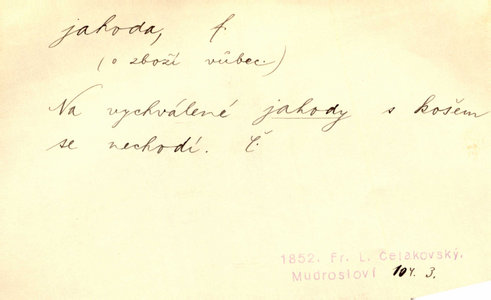 jahoda, f.
(o zboží vůbec.)
Na vychválené jahody s košem
se nechodí. Č.
1852. Fr. L. Čelakovský.
Mudrosloví 104. 3.